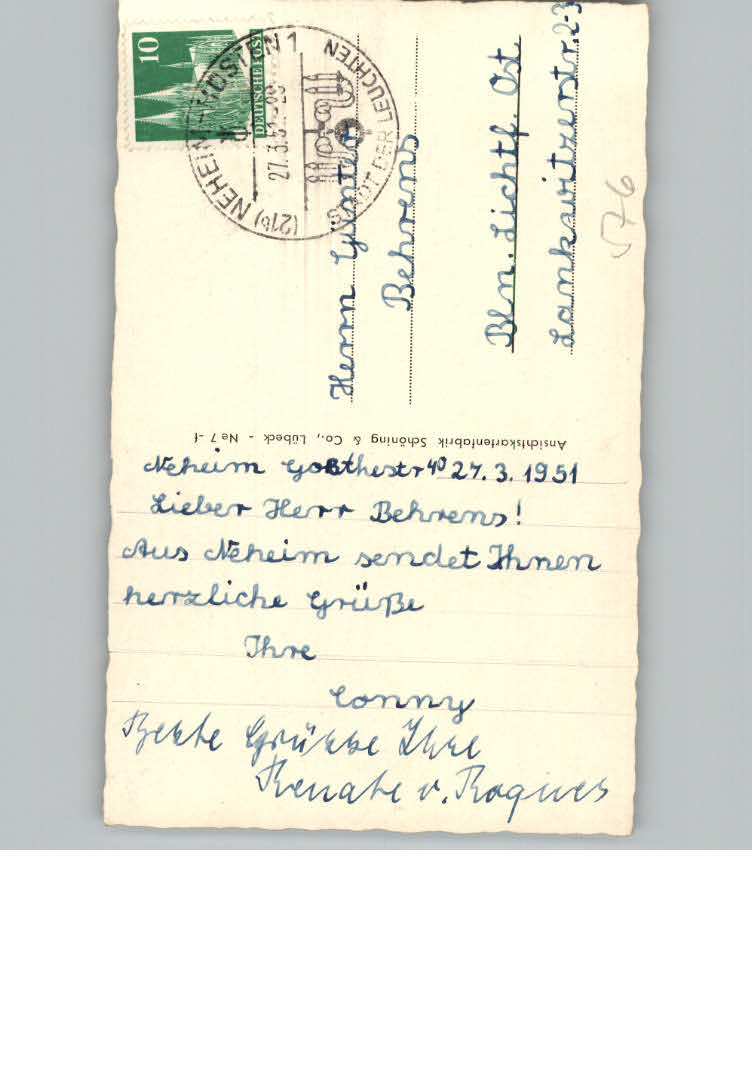 10
DEUTSCHE POST
(21b) NEHEIM-HÜSTEN 1
27.3.51
STADT DER LEUCHTEN
Herrn Günter
Behrens
Bln. Lichtf. Ost
Lankwitzerstr. 2-3
576
Ansichtskartenfabrik Schöning & Co., Lübeck - Ne 7 -f
Neheim Goethestr 40 27.3.1951
Lieber Herr Behrens!
Aus Neheim sendet Ihnen
herzliche Grüße
Ihre
Conny
Beste Grüsse Ihre
Renate v. Roques